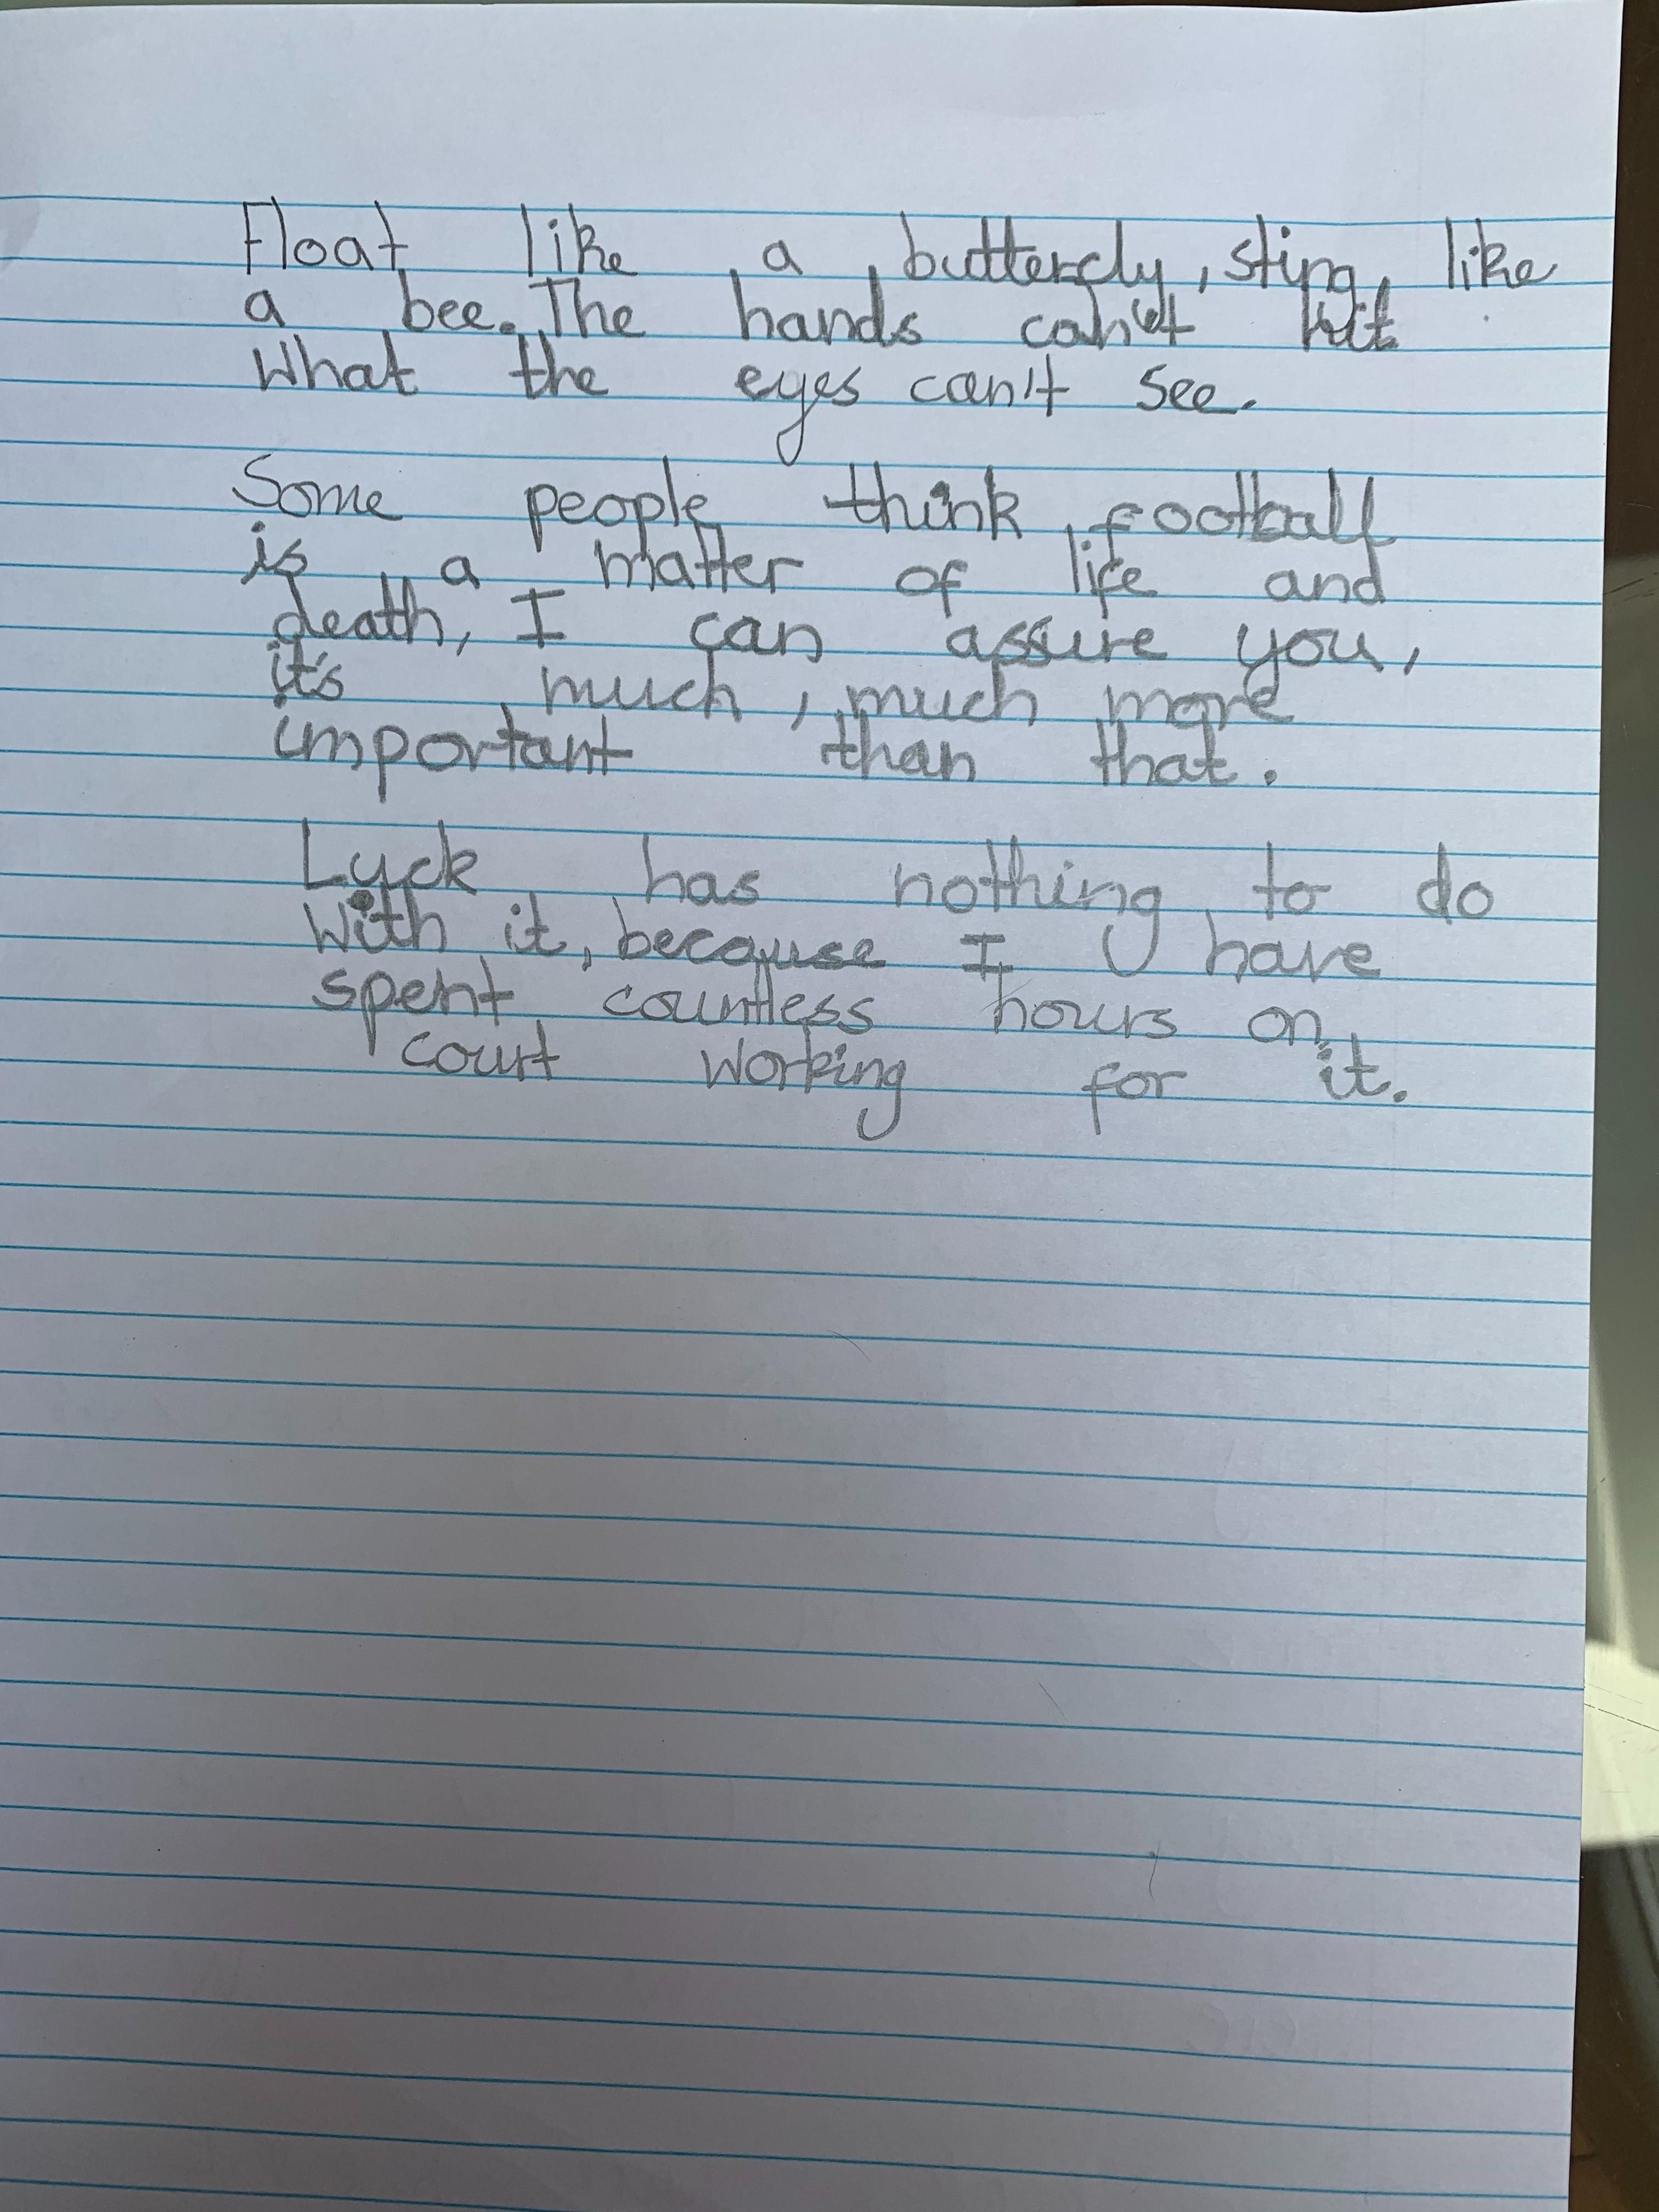 Float like a butterfly, sting like
a bee. The hands can't hit
What the eyes can't see.
Some people think football
is a matter of life and
death, I can assure you,
it's much, much more
important than that.
Luck has nothing to do
With it, because I have
spent countless hours on
court working for it.